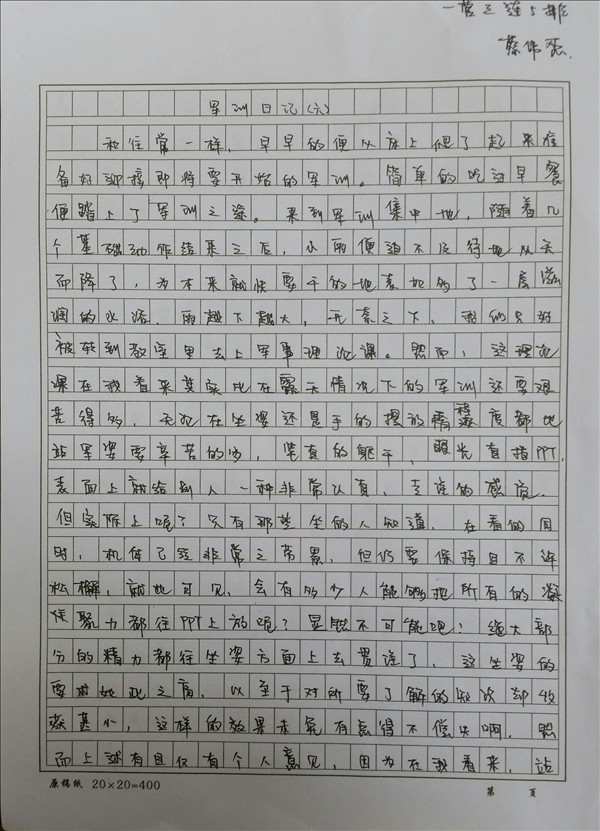 一营三连5排
蔡伟
军训日记(六)
和往常一样，早早的便从床上爬了起来准
备好迎接即将要开始的军训。简单的吃过早餐
便踏上了军训之途。来到军训集中地，随着几
个基础动作结束之后，小雨便迫不及待地从天
而降了，为本来就快要干的地表地的了一层滋
润的水添，雨越下越大，无奈之下，我们只好
被转到教室里去上军事理论课。然而，这理论
课在我看来其实比在露天情况下的军训还要艰
苦得多，无论在坐姿还是手的摆放精确程度都比
站军姿要辛苦的多，笔直的躯干，眼光直指PPT，
表面上就给别人一种非常认真，专注的感觉，
但实际上呢？只有那些坐的人知道，在看的同
时，机体已经非常之劳累，但仍要保持目不泽
松懈，就此可见，会有多少人能够把所有的凝
聚力都往PPT上放呢？显然不可能吧！绝大部
分的精力都往坐姿方面上去贯注了，这坐姿的
要求如此之高，以至于对所要了解的知识却收
获甚小，这样的效果未免有点得不偿失啊，然
而上述有且仅有个人意见，因为在我看来，站
原稿纸 20×20=400 第 页